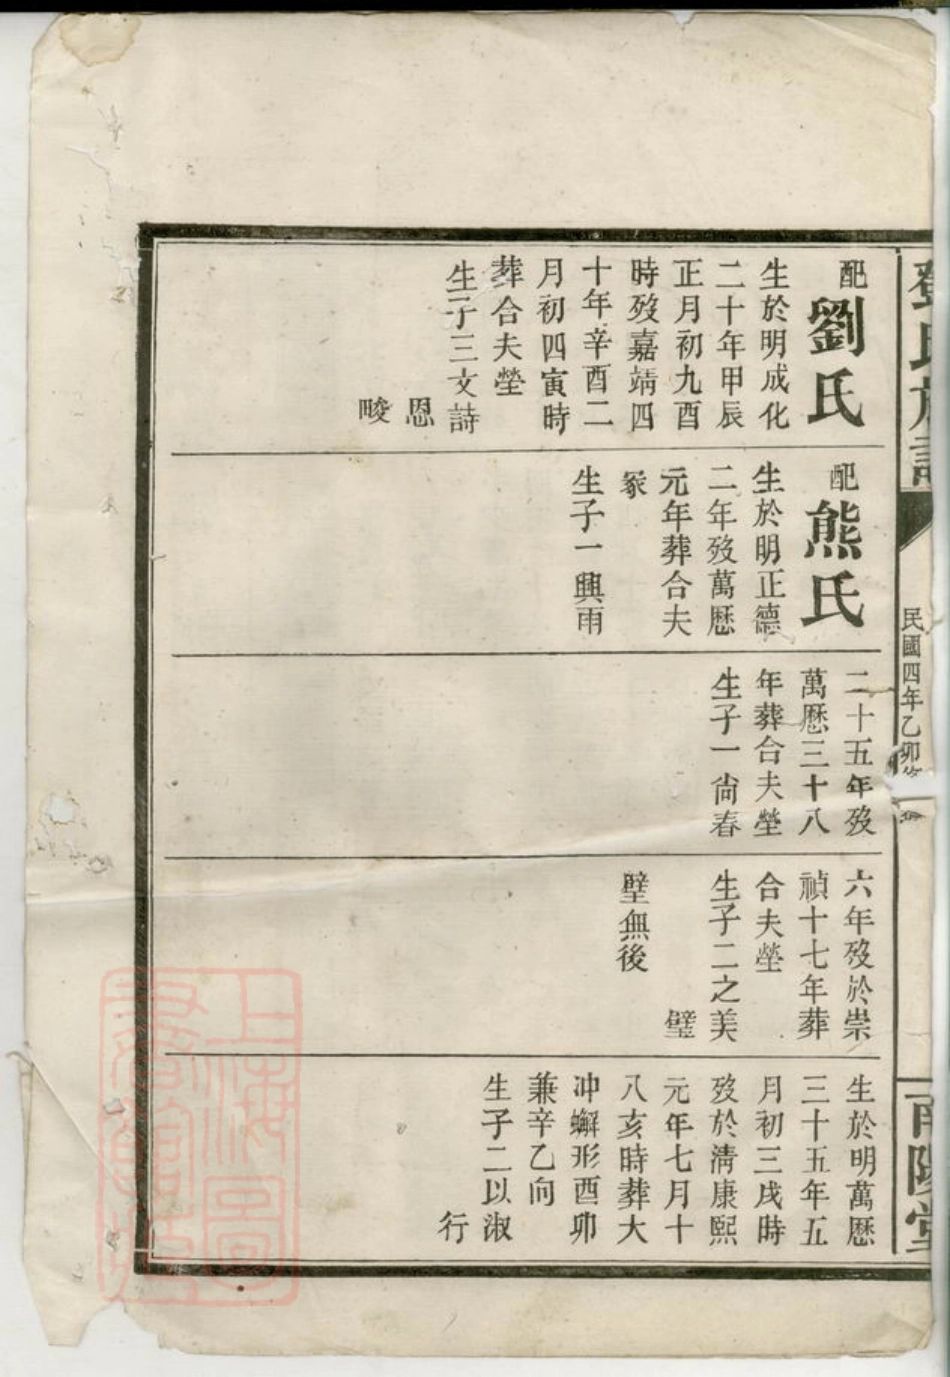 鄧氏族譜
民國四年乙卯
南陽堂
配劉氏
生於明成化
二十年甲辰
正月初九酉
時歿嘉靖四
十年辛酉二
月初四寅時
葬合夫塋
生子三文詩
恩
畯
配熊氏
生於明正德
二年歿萬歷
元年葬合夫
冢
生子一興雨
二十五年歿
萬歷三十八
年葬合夫塋
生子一尚春
六年歿於崇
禎十七年葬
合夫塋
生子二之美
璧
壁無後
生於明萬歷
三十五年五
月初三戌時
歿於清康熙
元年七月十
八亥時葬大
冲蠏形酉卯
兼辛乙向
生子二以淑
行
上海圖
書館藏